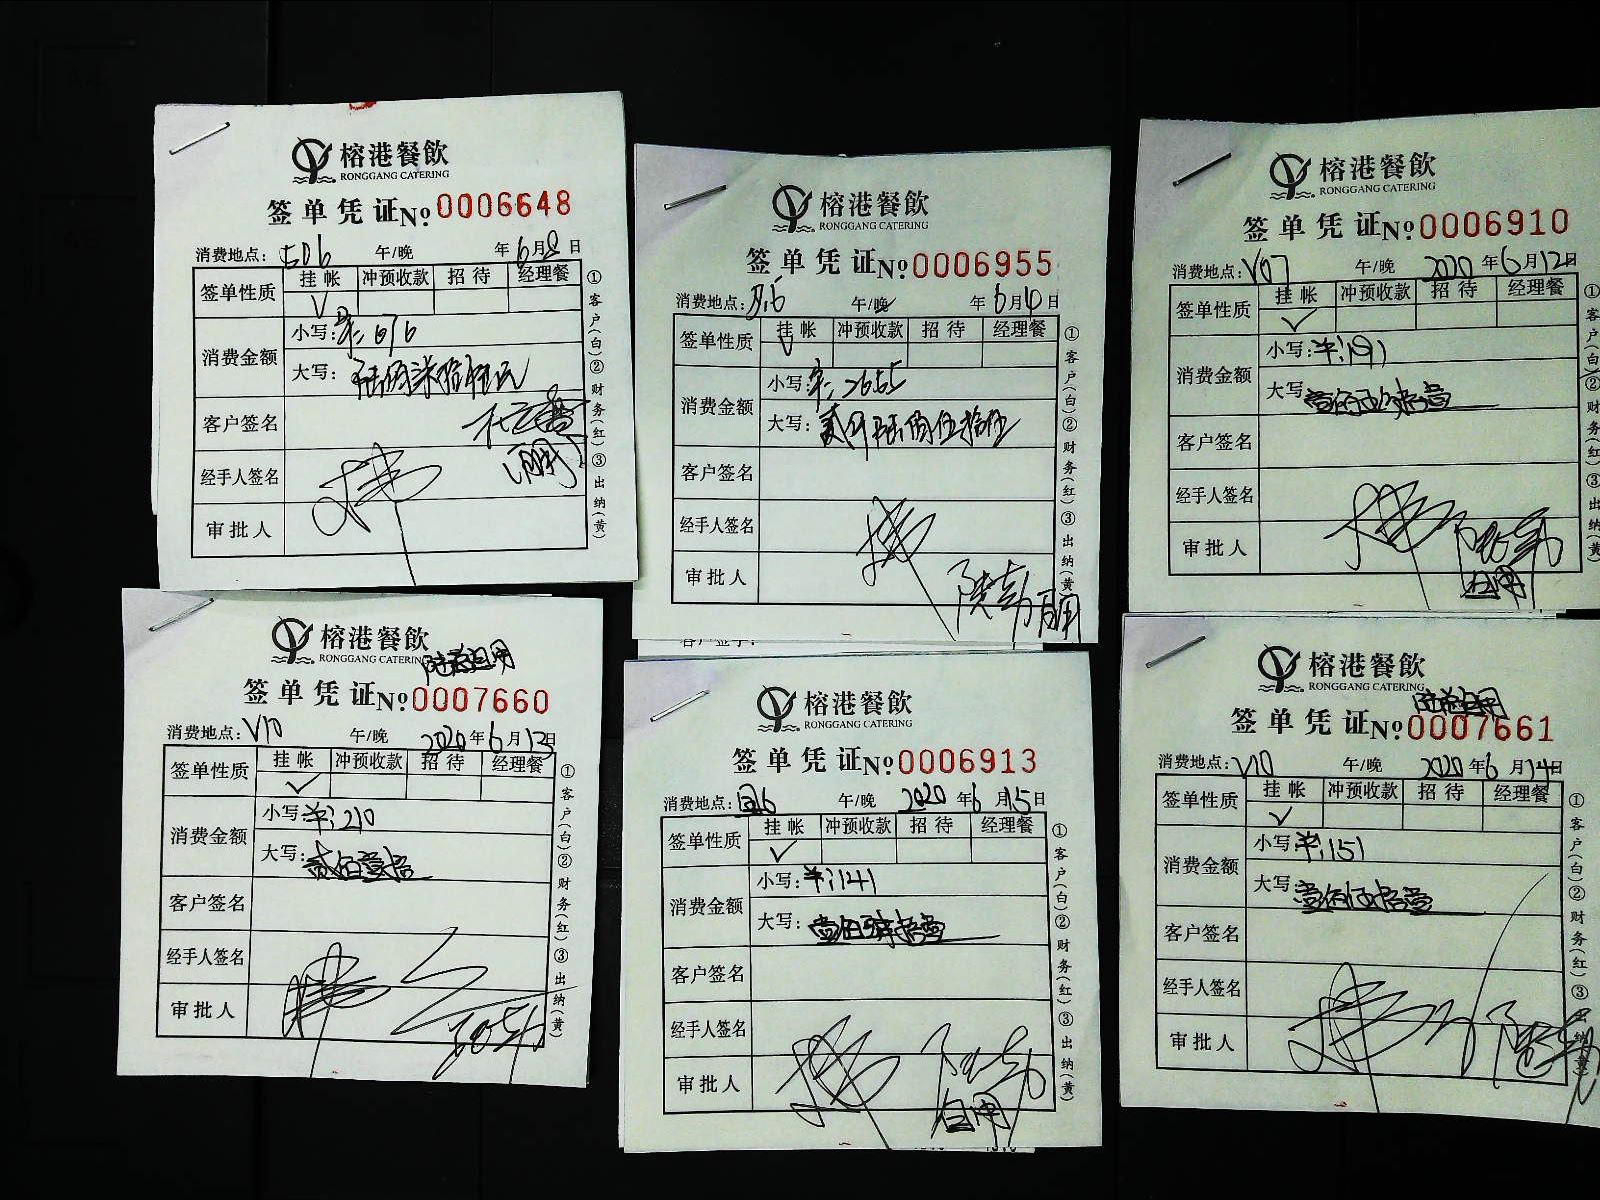 榕港餐飲
RONGGANG CATERING
签单凭证 No 0006648
消费地点: 午/晚 年6月8日
签单性质 挂帐 冲预收款 招待 经理餐
√
消费金额 小写: ¥:676
大写: 陆佰柒拾陆元
客户签名
经手人签名
审批人
①客户(白)②财务(红)③出纳(黄)
榕港餐飲
RONGGANG CATERING
签单凭证 No 0006955
消费地点: 午/晚 年6月4日
签单性质 挂帐 冲预收款 招待 经理餐
√
消费金额 小写: ¥:2655
大写: 贰仟陆佰伍拾伍
客户签名
经手人签名
审批人
①客户(白)②财务(红)③出纳(黄)
榕港餐飲
RONGGANG CATERING
签单凭证 No 0006910
消费地点: V07 午/晚 2020年6月12日
签单性质 挂帐 冲预收款 招待 经理餐
√
消费金额 小写: ¥:191
大写 壹佰玖拾壹
客户签名
经手人签名
审批人
自用
①客户(白)②财务(红)③出纳(黄)
榕港餐飲
RONGGANG CATERIN
签单凭证 No 0007660
消费地点: V10 午/晚 2020年6月13日
签单性质 挂帐 冲预收款 招待 经理餐
√
消费金额 小写: ¥:210
大写: 贰佰壹拾
客户签名
经手人签名
审批人
①客户(白)②财务(红)③出纳(黄)
榕港餐飲
RONGGANG CATERING
签单凭证 No 0006913
消费地点: 午/晚 2020年6月15日
签单性质 挂帐 冲预收款 招待 经理餐
√
消费金额 小写: ¥:141
大写: 壹佰肆拾壹
客户签名
经手人签名
审批人
自用
①客户(白)②财务(红)③出纳(黄)
榕港餐飲
RONGGANG CATERING
签单凭证 No 0007661
消费地点: V10 午/晚 2020年6月14日
签单性质 挂帐 冲预收款 招待 经理餐
√
消费金额 小写: ¥:151
大写: 壹佰伍拾壹
客户签名
经手人签名
审批人
①客户(白)②财务(红)③出纳(黄)